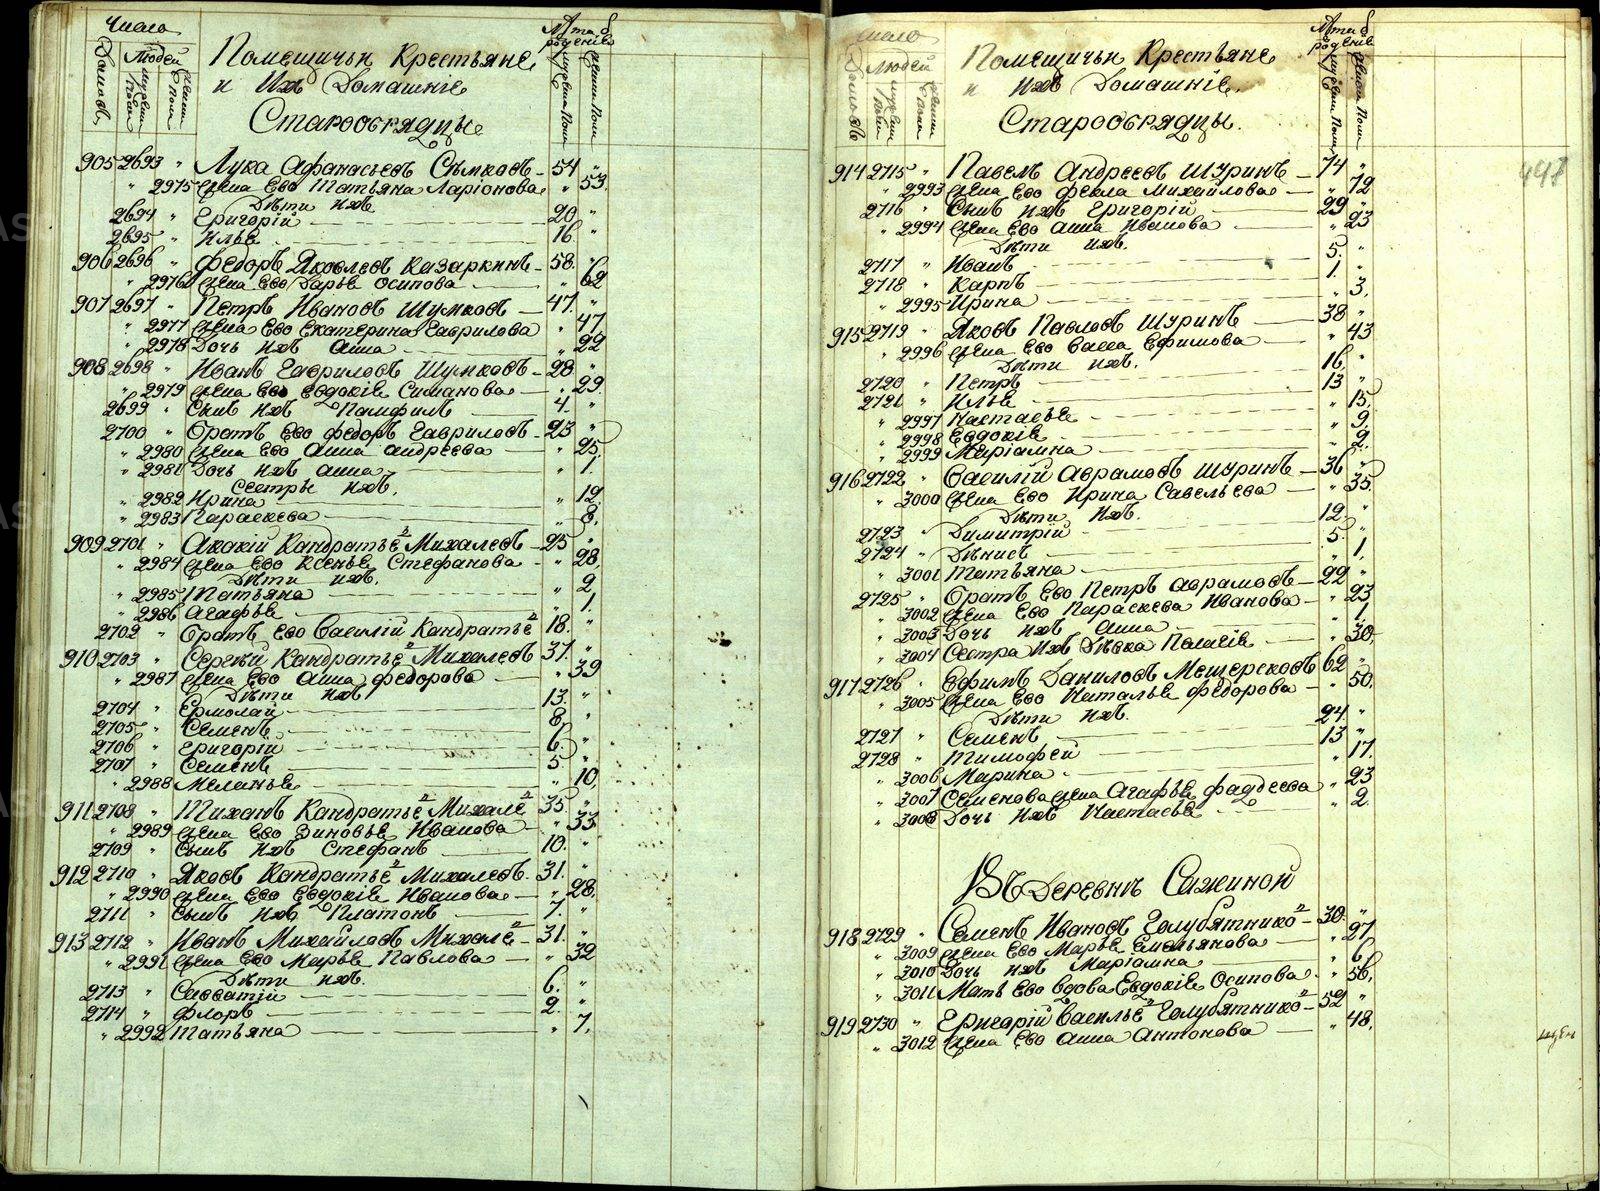 Число
Домовъ
Людей
мужеска пола
женска пола
Помещичьи Крестьяне
и Ихъ Домашніе
Старообрядцы
Лѣта отъ рожденія
мужеска пола
женска пола
905 2693 " Лука Афанасьевъ Сѣмковъ 54 "
" 2975 Жена Ево Татьяна Ларіонова " 53.
Дѣти ихъ
2694 " Григорій 20 "
2695 " Илья 16 "
906 2696 " Федоръ Яковлевъ Казаркинъ 58. "
" 2976 Жена Ево Дарья Осипова " 62
907 2697 " Петръ Ивановъ Шумковъ 47. "
" 2977 Жена Ево Екатерина Гаврилова " 47
" 2978 Дочь ихъ Анна " 22
908 2698 " Иванъ Гавриловъ Шумковъ 28 "
" 2979 Жена Ево Евдокія Симанова " 29.
2699 " Сынъ ихъ Памфилъ 4. "
2700 " Братъ Ево Федоръ Гавриловъ 23 "
" 2980 Жена Ево Анна Андреева " 25.
" 2981 Дочь ихъ Анна " 1
Сестры ихъ.
" 2982 Ирина " 12.
" 2983 Параскева " 8.
909 2701 " Акакій Кандратьевъ Михалевъ 25 "
" 2984 Жена Ево Ксенья Стефанова " 28.
Дѣти ихъ.
" 2985 Татьяна " 2
" 2986 Агафья " 1.
2702 " Братъ Ево Василій Кандратьевъ 18. "
910 2703 " Сергѣй Кандратьевъ Михалевъ 37. "
" 2987 Жена Ево Анна Федорова " 39
Дѣти ихъ
2704 " Ермолай 13. "
2705 " Семенъ 8. "
2706 " Григорій 6. "
2707 " Семенъ 5 "
" 2988 Меланья " 10,
911 2708 " Тиханъ Кандратьевъ Михалевъ 35 "
" 2989 Жена Ево Зиновья Иванова " 33
2709 " Сынъ ихъ Стефанъ 10. "
912 2710 " Яковъ Кандратьевъ Михалевъ 31. "
" 2990 Жена Ево Евдокія Иванова " 28.
2711 " Сынъ ихъ Платонъ 7. "
913 2712 " Иванъ Михайловъ Михалевъ 31. "
" 2991 Жена Ево Марья Павлова " 32
Дѣти ихъ.
2713 " Савватій 6. "
2714 " Флоръ 2. "
" 2992 Татьяна " 7.
Число
Домовъ
Людей
мужеска пола
женска пола
Помещичьи Крестьяне
и ихъ Домашніе.
Старообрядцы.
Лѣта отъ рожденія
мужеска пола
женска пола
914 2715 " Павелъ Андреевъ Шуринъ 74 "
" 2993 Жена Ево Фекла Михайлова " 72
2716 " Сынъ ихъ Григорій 29 "
" 2994 Жена Ево Анна Иванова " 23
Дѣти ихъ.
2717 " Иванъ 5. "
2718 " Карпъ 1. "
" 2995 Ирина " 3.
915 2719 " Яковъ Павловъ Шуринъ 38 "
" 2996 Жена Ево Васса Ефимова " 43
Дѣти ихъ.
2720 " Петръ 16. "
2721 " Илья 13 "
" 2997 Настасья " 15.
" 2998 Евдокія " 9.
" 2999 Маріамна " 2.
916 2722 " Василій Аврамовъ Шуринъ 36 "
" 3000 Жена Ево Ирина Савельева " 35.
Дѣти ихъ.
2723 " Димитрій 12. "
2724 " Дѣнисъ 5. "
" 3001 Татьяна " 1.
2725 " Братъ Ево Петръ Аврамовъ 22 "
" 3002 Жена Ево Параскева Иванова " 23
" 3003 Дочь ихъ Анна " 1
" 3004 Сестра ихъ Дѣвка Пелагія " 30.
917 2726 " Ефимъ Даниловъ Мещерековъ 62 "
" 3005 Жена Ево Наталья Федорова " 50.
Дѣти ихъ.
2727 " Семенъ 24. "
2728 " Тимофей 13 "
" 3006 Марина " 17.
" 3007 Семенова жена Агафья Фаддеева " 23
" 3008 Дочь ихъ Настасья " 2
Въ Деревнѣ Сажиной
918 2729 " Семенъ Ивановъ Голубятниковъ 30. "
" 3009 Жена Ево Марья Емельянова " 27
" 3010 Дочь ихъ Маріамна " 6
" 3011 Мать Ево вдова Евдокія Осипова " 56.
919 2730 " Григорій Васильевъ Голубятниковъ 52 "
" 3012 Жена Ево Анна Антонова " 48.